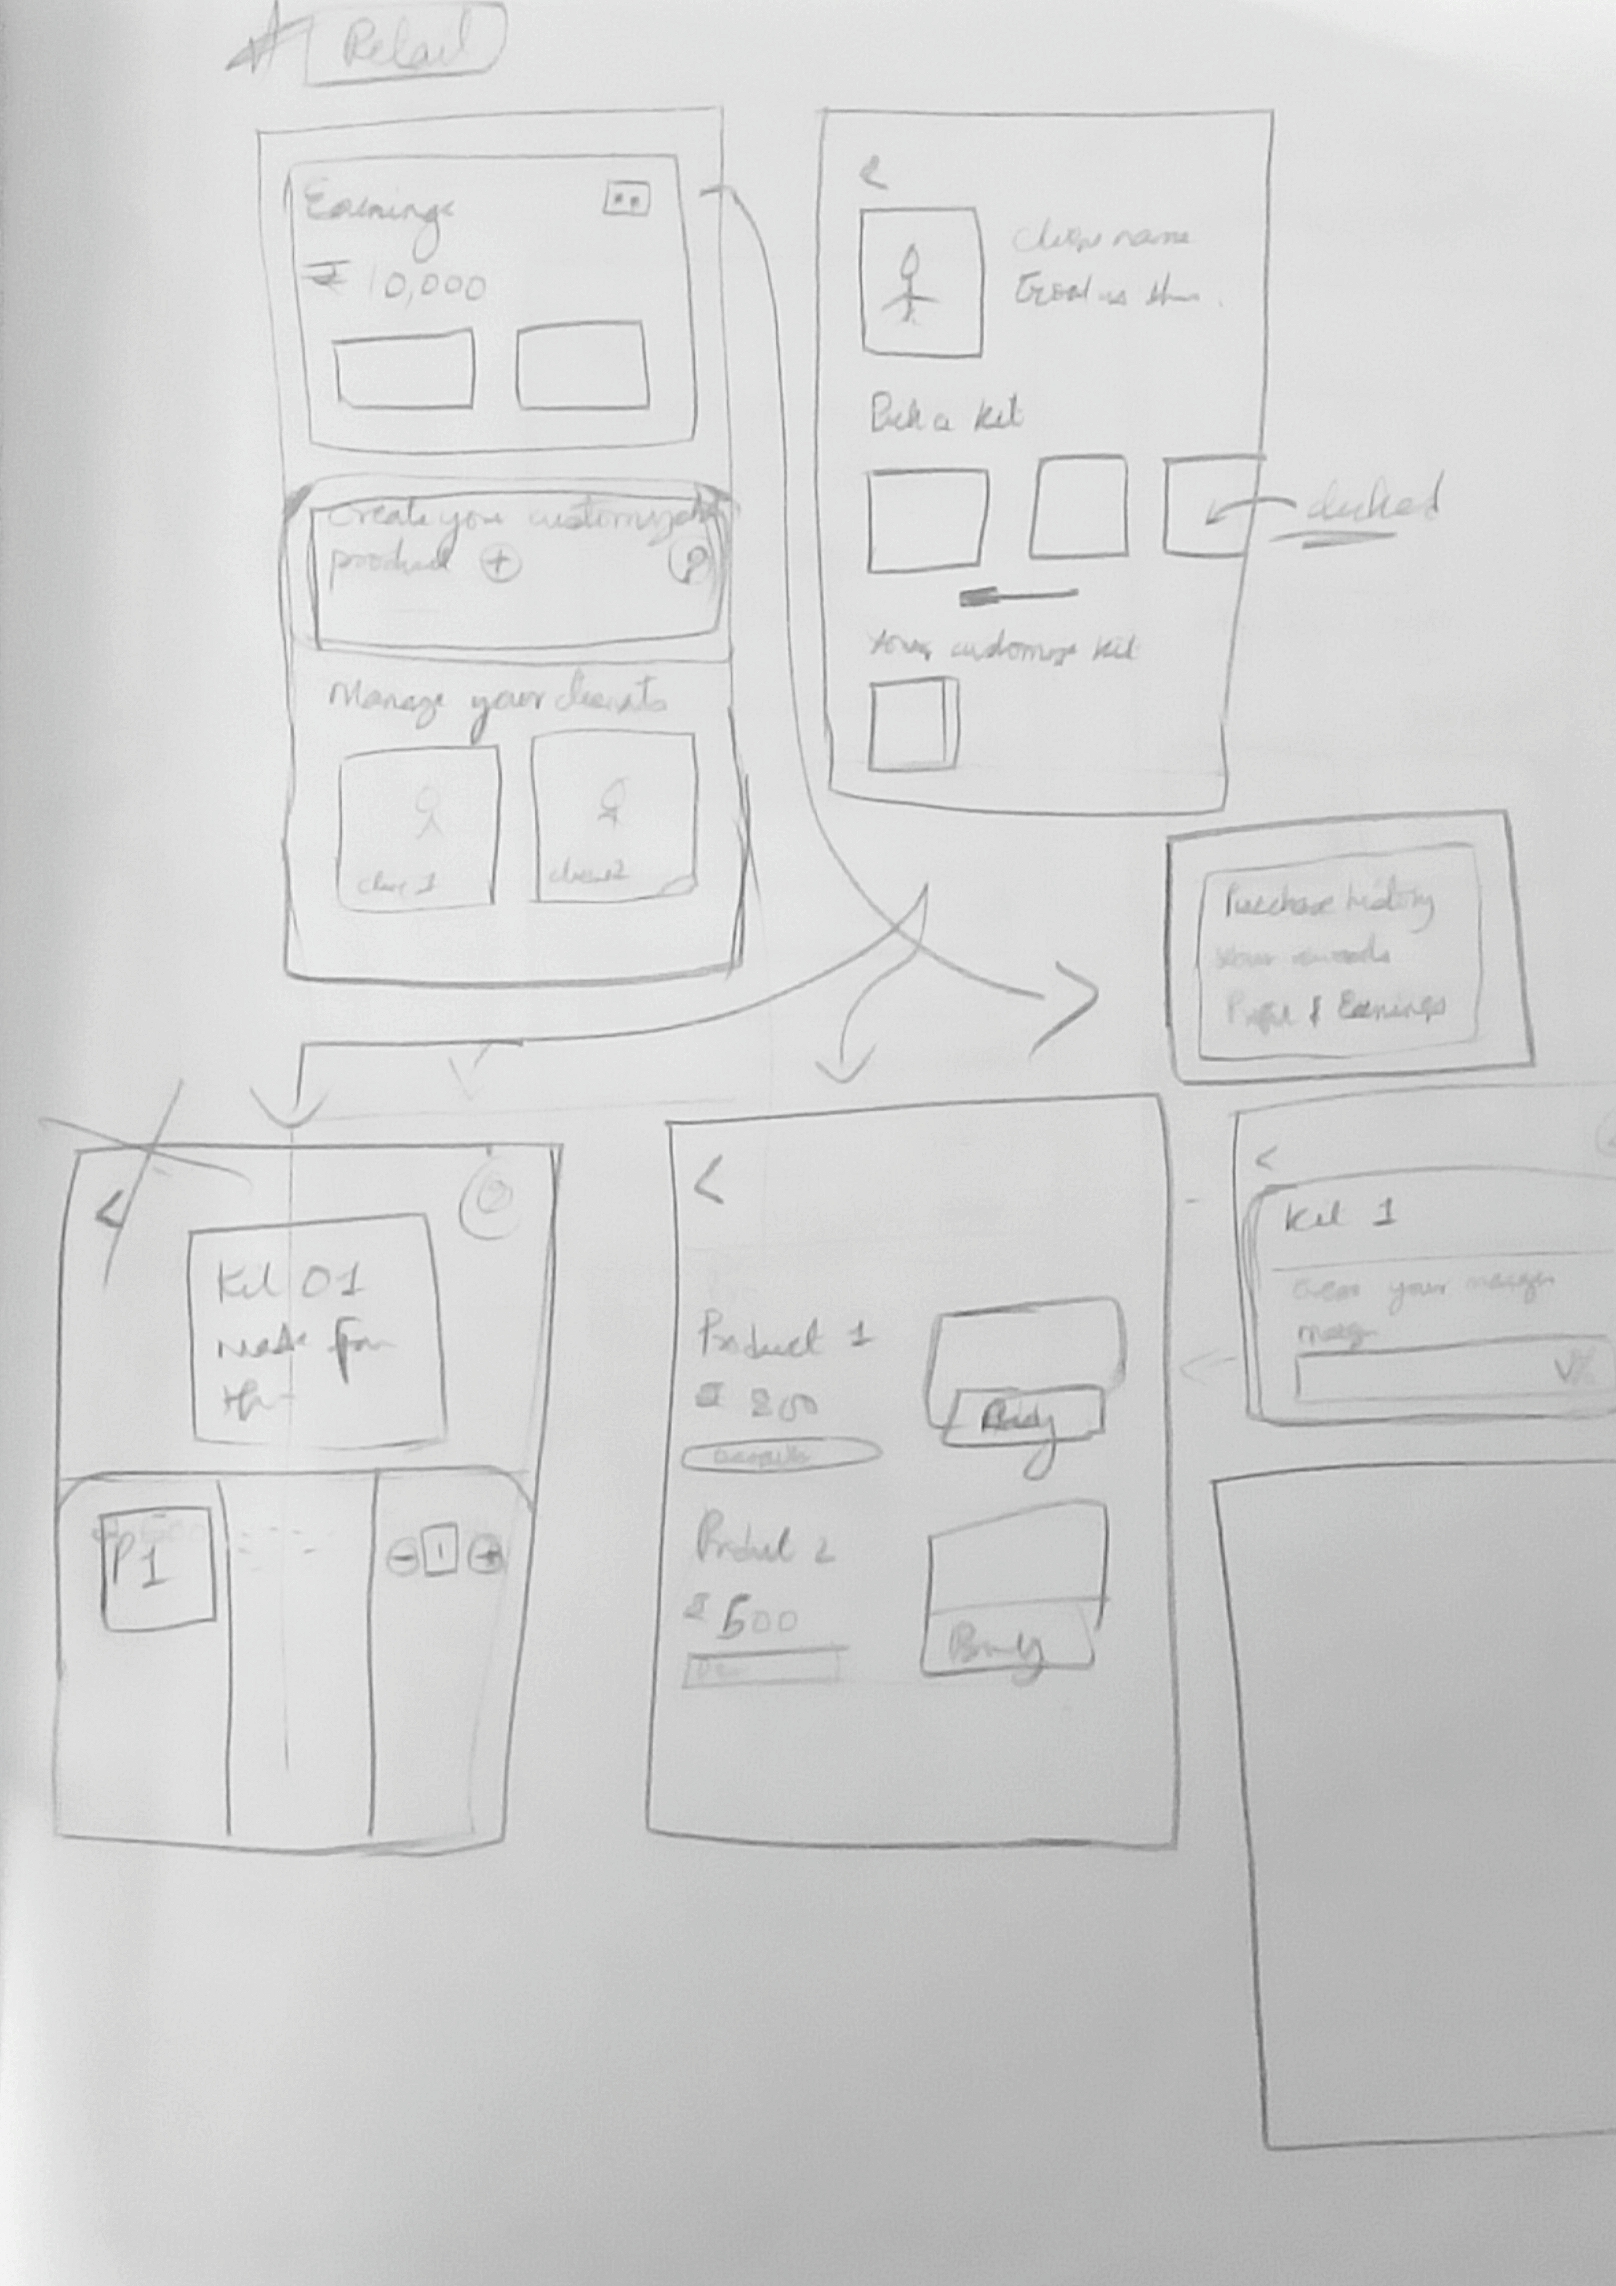 Retail
Earnings
₹ 10,000
Create your customized
product +
Manage your clients
client 1
client 2
<
client name
Pick a kit
clicked
Your customize kit
Purchase history
Your rewards
Profit & Earnings
<
Kit 01
Made for
P1
- 1 +
<
Product 1
₹ 200
Buy
Product 2
₹ 500
Buy
<
Kit 1
your
margin
%